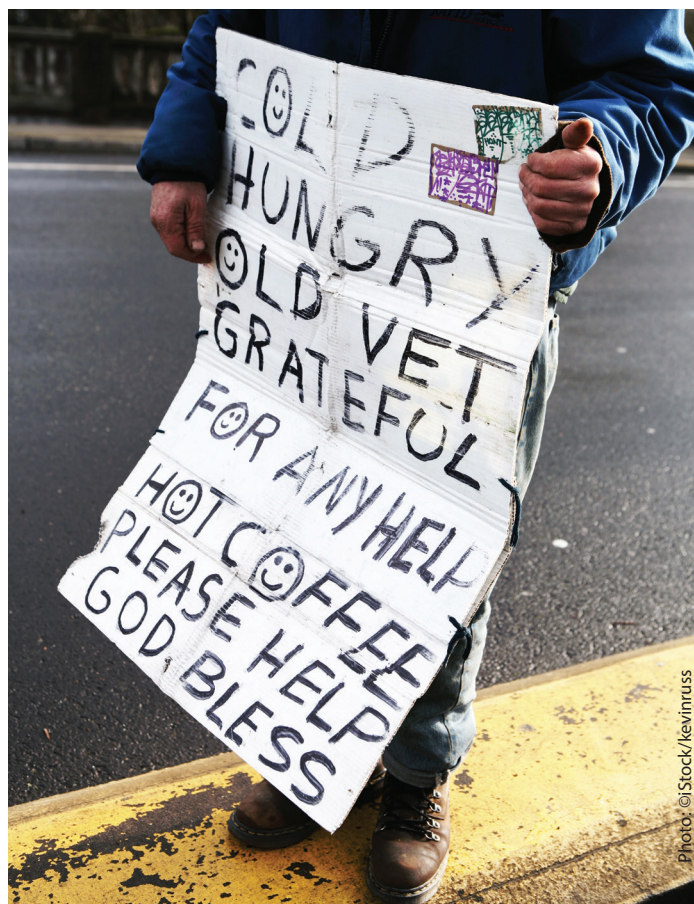 COLD
HUNGRY
OLD VET
GRATEFUL
FOR ANY HELP
HOT COFFEE
PLEASE HELP
GOD BLESS
Photo: ©iStock/kevinruss